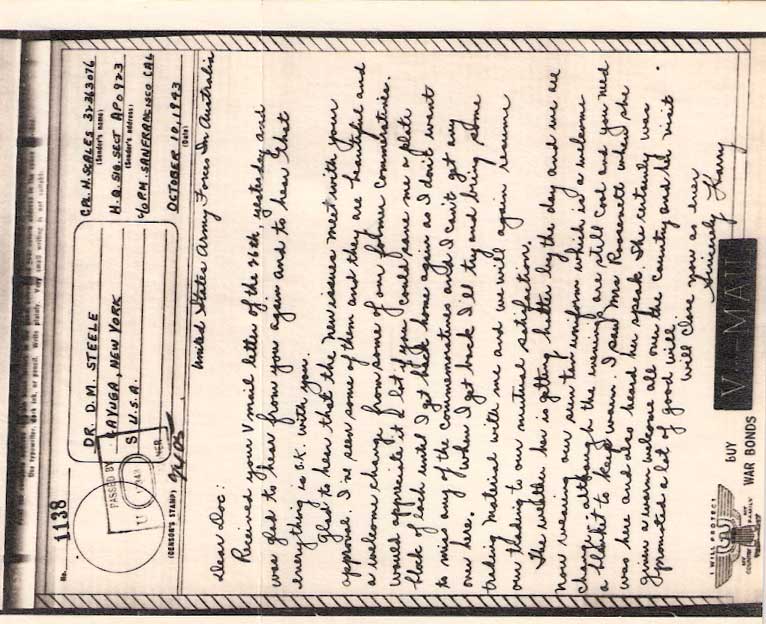 Use typewriter, dark ink, or pencil. Write plainly. Very small writing is not suitable.
No. 1138
DR. D. M. STEELE
CAYUGA, NEW YORK
U.S.A.
PASSED BY
(CENSOR'S STAMP)
CPL. H. SCALES 32363076
(Sender's name)
H.Q. SIG. SECT APO 923
(Sender's address)
℅ P.M. SANFRANCISCO CAL
OCTOBER 10, 1943
(Date)
United States Army Forces In Australia
Dear Doc:
Received your V mail letter of the 26th, yesterday and
was glad to hear from you again and to hear that
everything is O.K. with you.
Glad to hear that the new issues meet with your
approval. I've seen some of them and they are beautiful and
a welcome change from some of our former Commemoratives.
Would appreciate it a lot if you could leave me a plate
block of each until I get back home again as I don't want
to miss any of the commemoratives and I can't get any
over here. When I get back I'll try and bring some
trading material with me and we will again resume
our trading to our mutual satisfaction.
The weather here is getting better by the day and we are
now wearing our sun tan uniform which is a welcome
change, although the evenings are still cool and you need
a blanket to keep warm. I saw Mrs Roosevelt when she
was here and also heard her speak. She certainly was
given a warm welcome all over the country and her visit
promoted a lot of good will.
Will close now as ever
Sincerely Harry
I WILL PROTECT
MY COUNTRY
MY FAMILY
BUY
WAR BONDS
V-MAIL